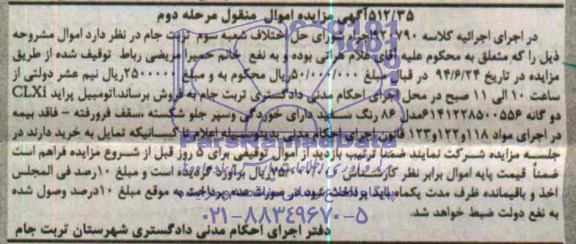 ۵۱۲/۳۵آگهی مزایده اموال منقول مرحله دوم
در اجرای اجرائیه کلاسه ۹۲۰۷۹۰اجراء شورای حل اختلاف شعبه سوم تربت جام در نظر دارد اموال مشروحه
ذیل را که متعلق به محکوم علیه آقای غلام طرانی بوده و به نفع خانم حمیرا مریضی رباط توقیف شده از طریق
مزایده در تاریخ ۹۴/۶/۲۴ در قبال مبلغ ۵۰/۰۰۰/۰۰۰ریال محکوم به و مبلغ ۲۵۰۰۰۰۰ریال نیم عشر دولتی از
ساعت ۱۰ الی ۱۱ صبح در محل اجرای احکام مدنی دادگستری تربت جام به فروش برساند.اتومبیل پراید CLXi
دو گانه ۶۱۴۱۲۲۸۵۰۰۵۵۶مدل ۸۶ رنگ سفید دارای خوردگی وسپر جلو شکسته ،سقف فرورفته - فاقد بیمه
در اجرای مواد ۱۱۸و۱۲۲و۱۲۳ قانون اجرای احکام مدنی بدینوسیله اعلام تا کسانیکه تمایل به خرید دارند در
جلسه مزایده شرکت نمایند ضمنا ترتیب بازدید از اموال توقیفی برای ۵ روز قبل از شروع مزایده فراهم است
ضمناً قیمت پایه اموال برابر نظر کارشناس ریال برآورد گردیده است و مبلغ ۱۰درصد فی المجلس
اخذ و باقیمانده ظرف مدت یکماه باید پرداخت شود در صورت عدم پرداخت به موقع مبلغ ۱۰درصد وصول شده
به نفع دولت ضبط خواهد شد.
دفتر اجرای احکام مدنی دادگستری شهرستان تربت جام
ParsNamadData
۰۲۱-۸۸۳۴۹۶۷۰-۵